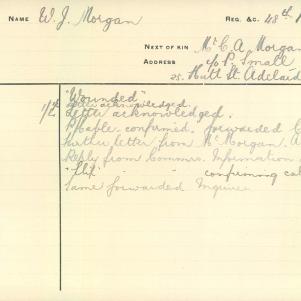 NAME W. J. Morgan REG. &C. 48th
NEXT OF KIN Mr C. A. Morgan
ADDRESS c/o P. Small
25 Hutt St Adelaid
"Wounded"
acknowledged.
1/2 Letter acknowledged.
confirmed. forwarded
Further letter from Mr Morgan. A
Reply from Commrs. Information
confirming ca
Same forwarded Enquirer